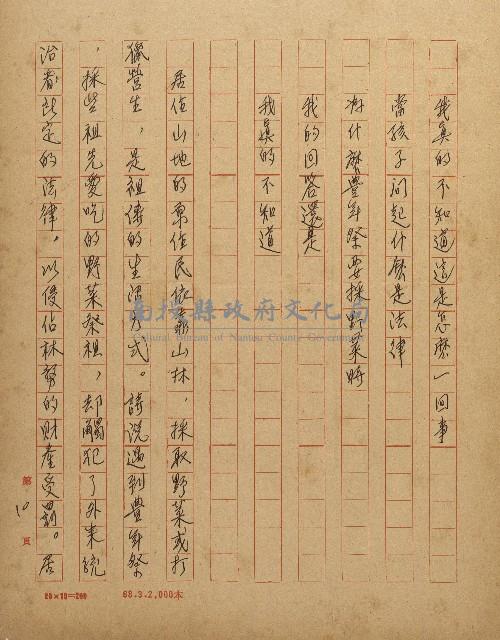 我真的不知道這是怎麼一回事
當孩子問起什麼是法律
為什麼豐年祭要採野菜時
我的回答還是
我真的不知道
居住山地的原住民依靠山林，採取野菜或打
獵營生，是祖傳的生活方式。請說遇到豐年祭
，採些祖先愛吃的野菜祭祖，卻觸犯了外來統
治者所定的法律，以侵佔林務的財產受罰。居
第10頁
20×10=200
68.3.2,000本
南投縣政府文化局
Cultural Bureau of Nantou County Government